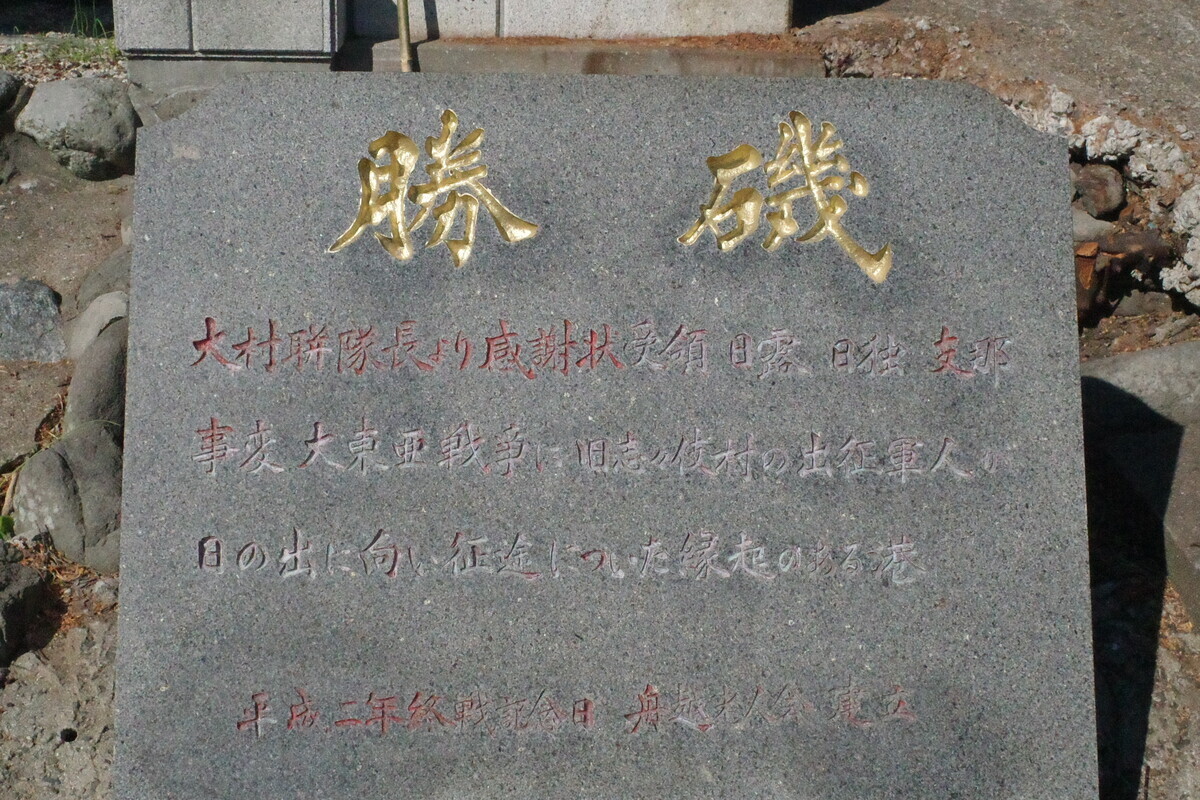 勝 磯
大村聯隊長より感謝状受領 日露 日独 支那
事変 大東亜戦争に 旧志々伎村の出征軍人が
日の出に向い征途についた縁起のある港
平成二年終戦記念日 舟越老人会 建立